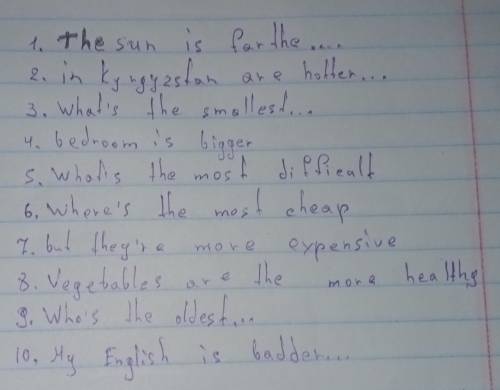 1. The sun is farthe....
2. in kyrgyzstan are hotter...
3. What's the smallest...
4. bedroom is bigger
5. What's the most difficalt
6. Where's the most cheap
7. but they're more expensive
8. Vegetables are the more healthy
9. Who's the oldest...
10. My English is badder...